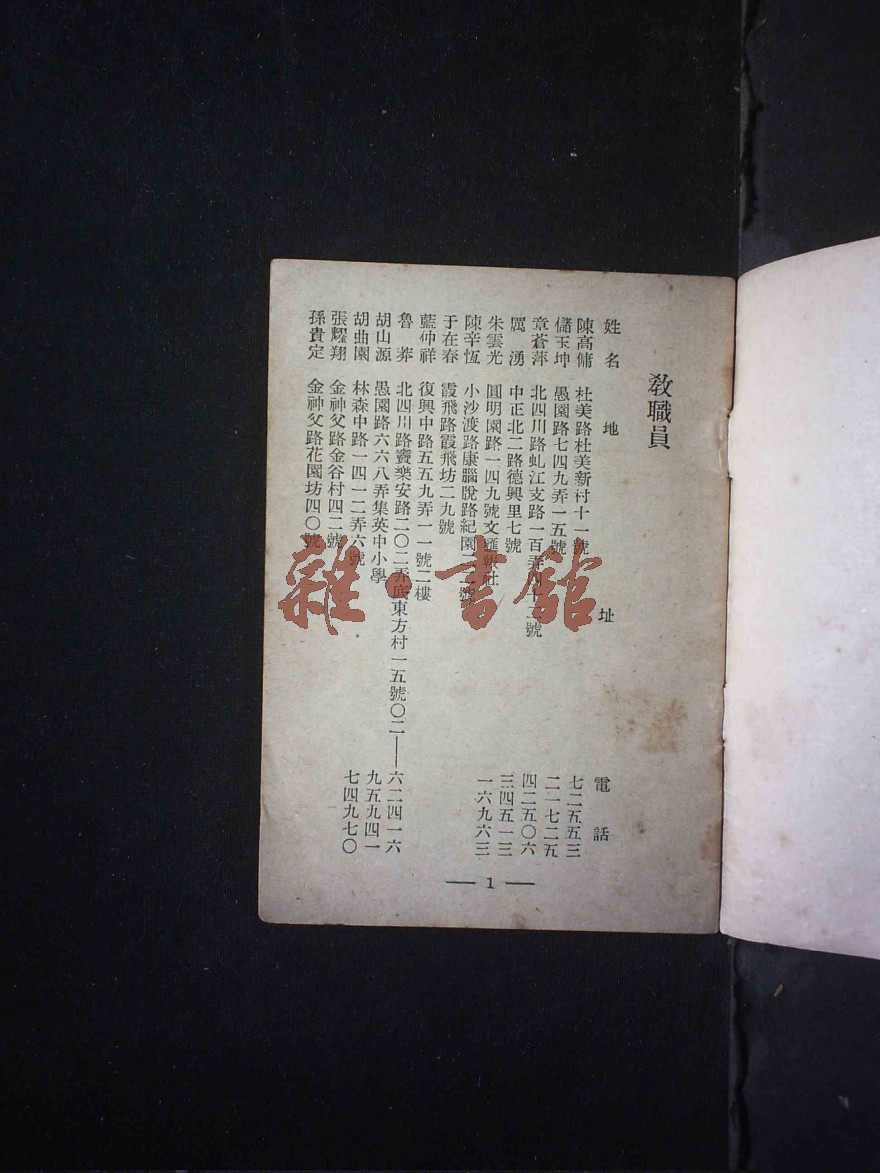 教職員
姓名 地址 電話
陳高傭 杜美路杜美新村十一號 七二五五三
儲玉坤 愚園路七四九弄一五號 二一七二五
章蒼萍 北四川路虬江支路一百弄四十二號 四二五〇六
厲湧 中正北二路德興里七號 三四五一三
朱雲光 圓明園路一四九號文匯報社 一六九六三
陳辛恆 小沙渡路康腦脫路紀園 號
于在春 霞飛路霞飛坊二九號
藍仲祥 復興中路五五九弄一一號二樓
魯莽 北四川路竇樂安路二〇二弄底東方村一五號〇二——六二四一六
胡山源 愚園路六六八弄集英中小學 九五九四一
胡曲園 林森中路一四一二弄六號 七四九七〇
張耀翔 金神父路金谷村四二號
孫貴定 金神父路花園坊四〇號
— 1 —
雜·書館